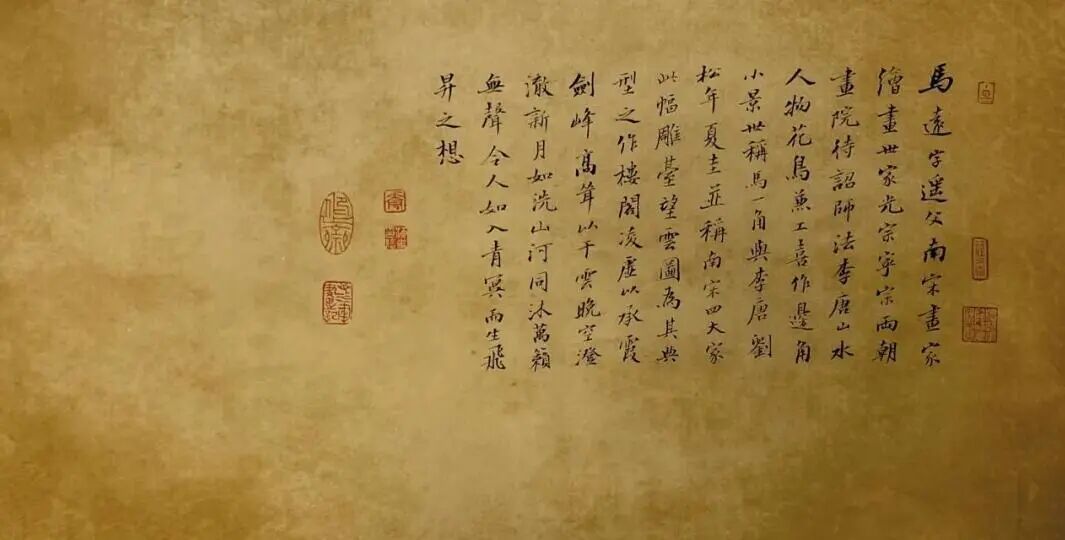 馬遠字遥父南宋畫家
繪畫世家光宗寧宗兩朝
畫院待詔師法李唐山水
人物花鳥兼工喜作邊角
小景世稱馬一角與李唐劉
松年夏圭並稱南宋四大家
此幅雕臺望雲圖為其典
型之作樓閣凌虛以承霞
劍峰高聳以干雲晚空澄
澈新月如洗山河同沐萬籟
無聲令人如入青冥而生飛
昇之想